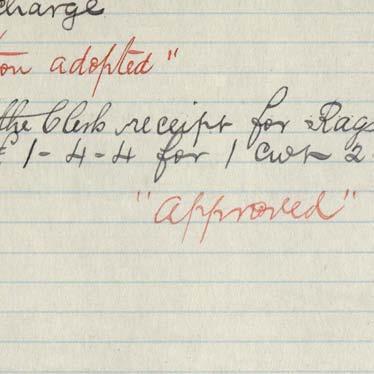 charge
adopted"
the Clerk receipt for Rags
1-4-4 for 1 cwt 2
"approved"